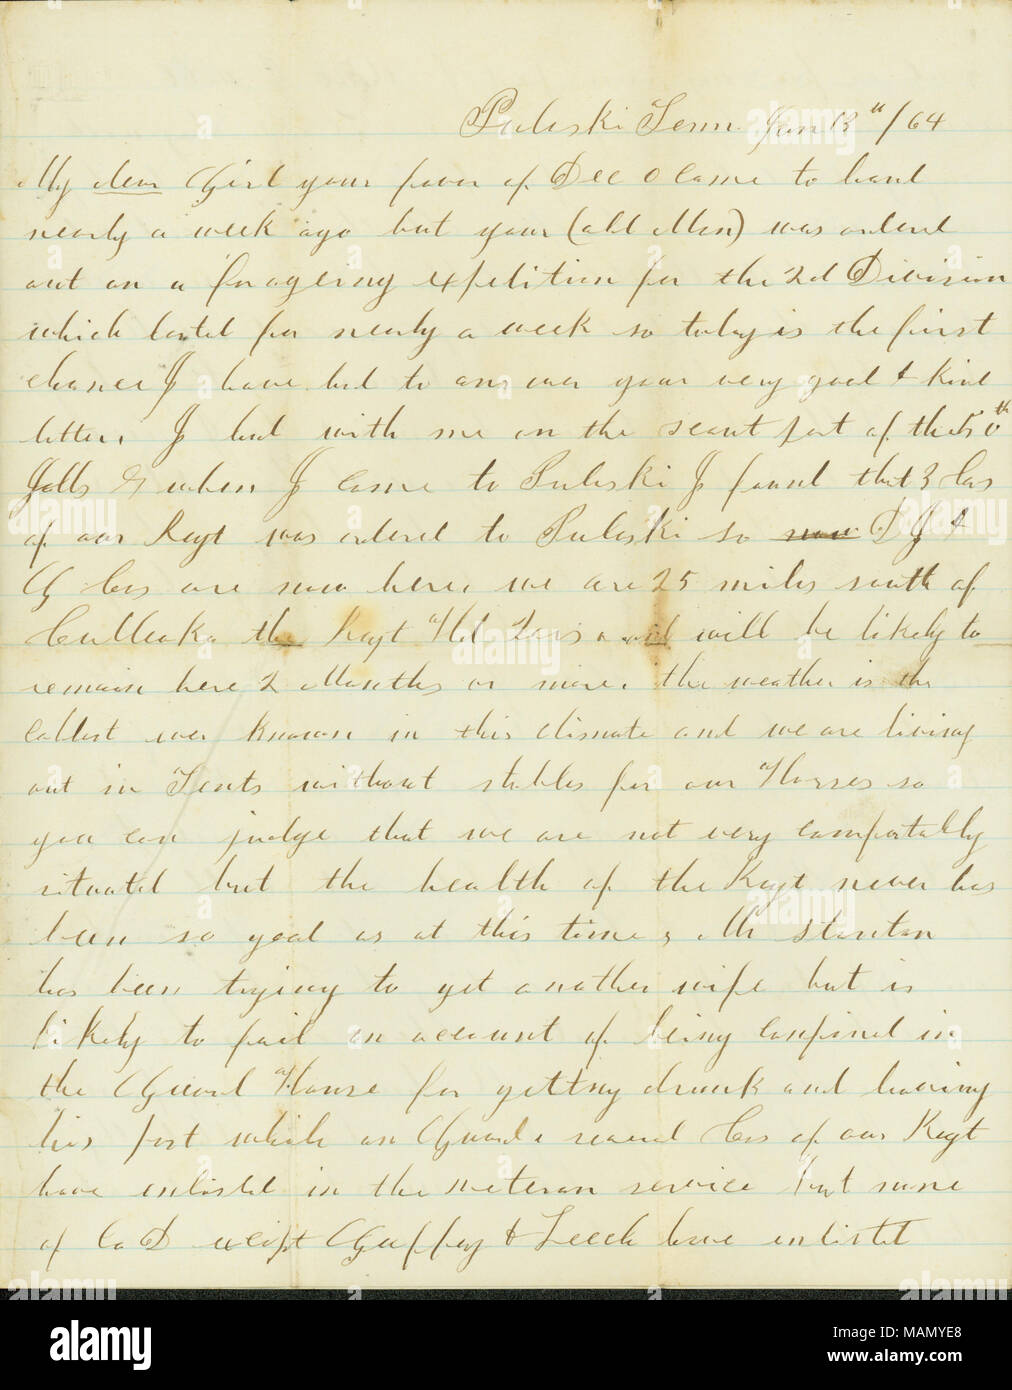 Pulaski Tenn. Jan 13th /64
My dear Girl your faver of Dec came to hand
nearly a week ago but your (old Man) was orderd
out on a forageing expedition for the 2d Division
which lasted for nearly a week so today is the first
chance I have had to answer your very good & kind
letter. I had with me on the scout part of the 50th
Ills & when I came to Pulaski I found that 3 Cos
of our Regt was orderd to Pulaski so D I &
G Cos are now here, we are 25 miles south of
Culleoka the Regt Hd Qurs and will be likely to
remain here 2 Months or more. the weather is the
coldest ever known in this climate and we are living
out in Tents without stables for our Horses so
you can judge that we are not very comfortably
situated but the health of the Regt never has
been so good as at this time, Mr Stanton
has been trying to get another wife but is
likely to fail on account of being confined in
the Guard House for getting drunk and leaving
his post while on Guard. several Cos of our Regt
have enlisted in the veteran service but none
of Co D except Guffey & Leech have enlisted
alamy
a
alamy stock photo
MAMYE8
www.alamy.com